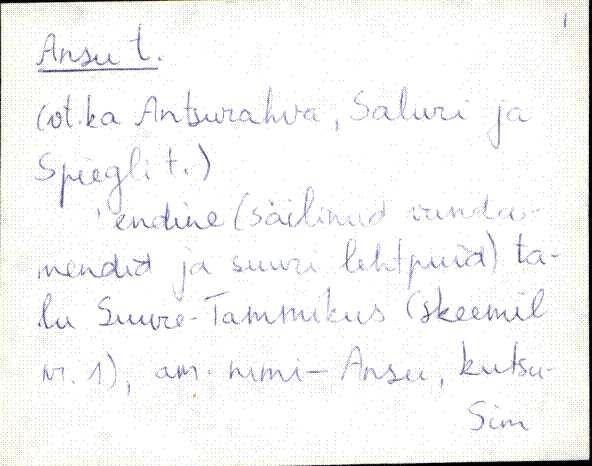 1
Ansu t.
(vt. ka Antsurahva, Saluri ja
Spiegli t.)
endine (säilinud vunda-
mendid ja suuri lehtpuid) ta-
lu Suure-Tammikus (skeemil
nr. 1), am. nimi - Ansu, kutsu-
Sim